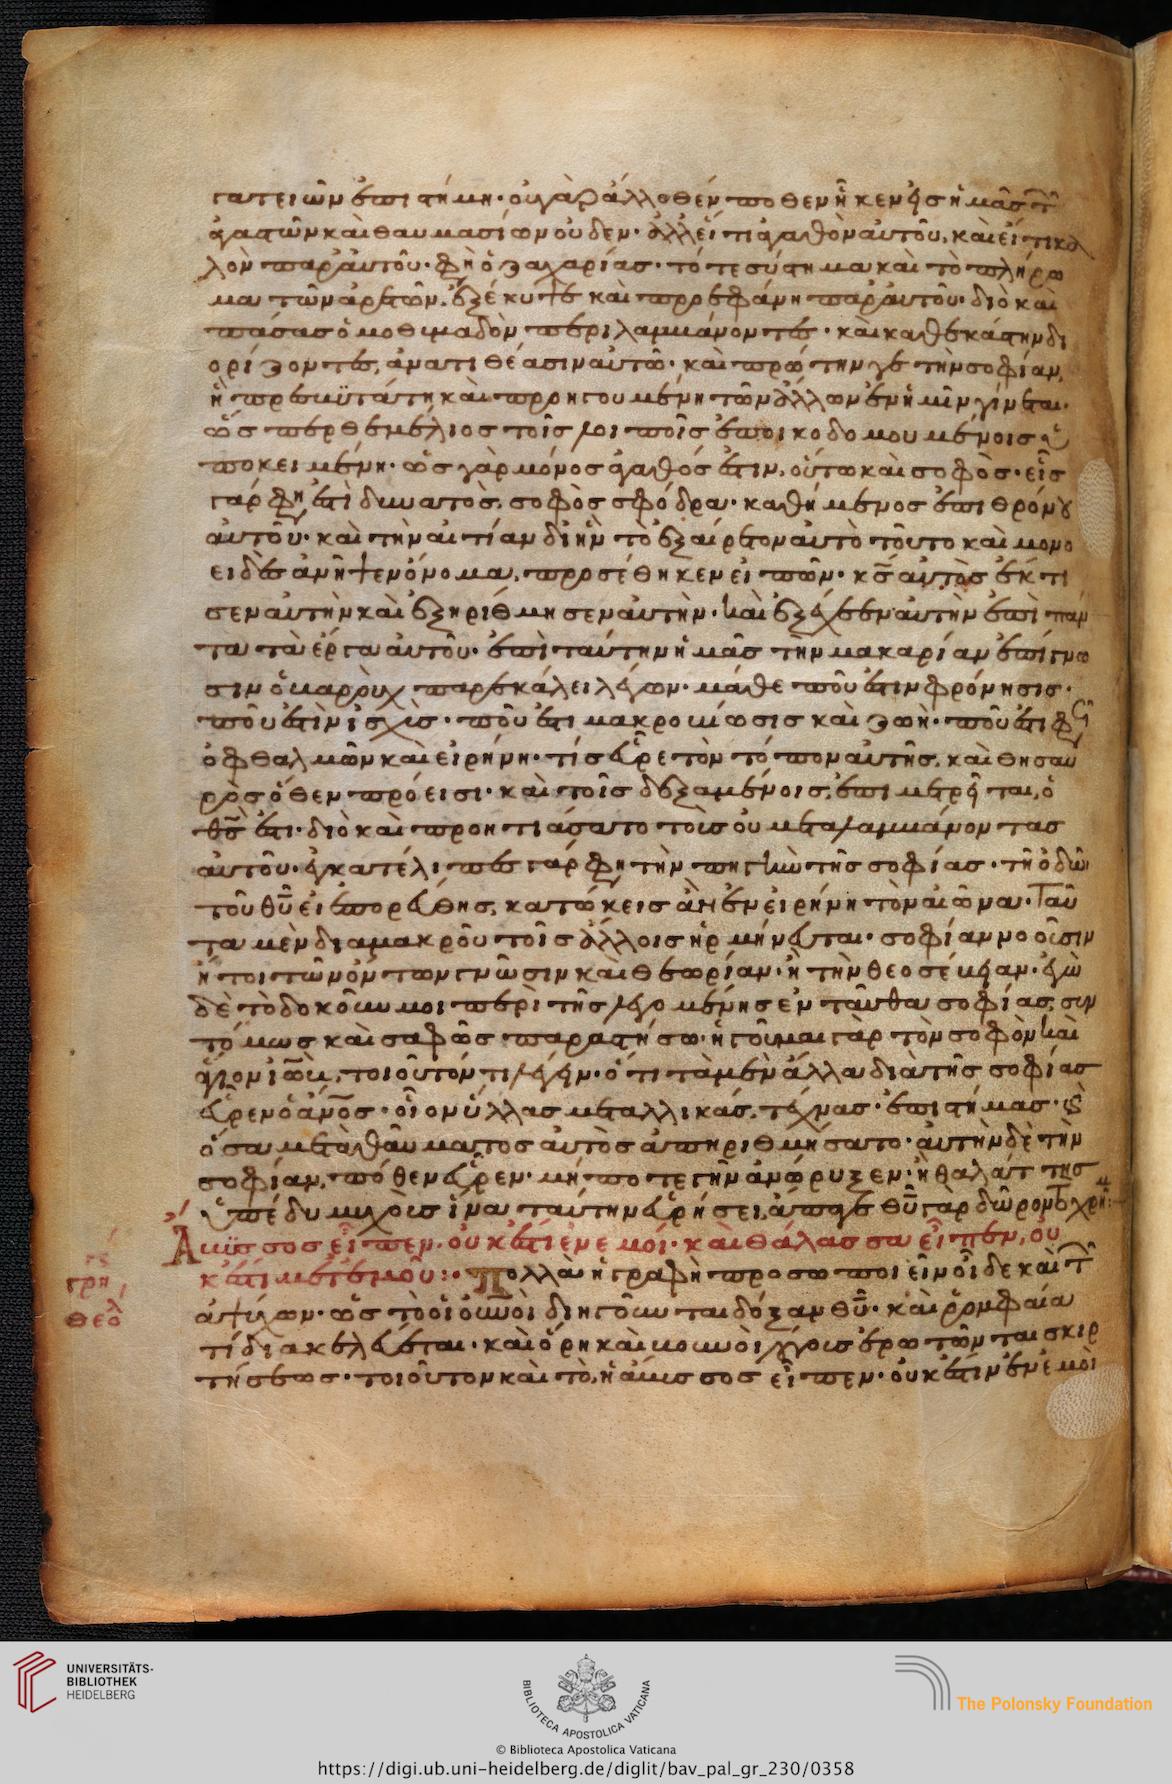 γατειῶν ἐπιστήμη· οὐ γὰρ ἄλλοθέν ποθεν ἧκεν εἰς ἡμᾶς τῶν
ἀγαθῶν καὶ θαυμασίων οὐδεν· ἀλλ εἴ τι ἀγαθὸν αὐτοῦ, καὶ εἴ τι καλ
λὸν παρ αὐτοῦ· φη ὁ ζαχαρίας· τό τε σύστημα καὶ τὸ πλήρω
μα τῶν ἀρετῶν, ἐξ ἐκ καὶ προεφάνη παρ αὐτοῦ· διὸ καὶ
πάσας ὁμοθυμαδὸν περιλαμβάνοντες· καὶ καθ ἑκάστην δι
ορίζοντες, ἀνατιθέασιν αὐτῶ· καὶ πρώτην γε τὴν σοφίαν,
ἡ πρεσβυτάτη καὶ προηγουμένη τῶν ἄλλων ἐν ἡμῖν γίνεται·
ὥσπερ θεμέλιος τοῖς λοιποῖς ἐποικοδομουμένοις ὑ
ποκειμένη· ὡς γὰρ μόνος ἀγαθός ἐστιν, οὕτω καὶ σοφὸς· εἷς
γάρ φη ἐστὶ δυνατὸς, σοφὸς σφόδρα· καθήμενος ἐπι θρόνου
αὐτοῦ· καὶ τὴν αἰτίαν δι ἣν τὸ ἐξαίρετον αὐτὸ τοῦτο καὶ μονο
ειδὲς ἀνῆψεν ὄνομα, προσέθηκεν εἰπὼν· κς αὐτὸς ἔκτι
σεν αὐτὴν καὶ ἐξηρίθμησεν αὐτὴν· καὶ ἐξέχεεν αὐτὴν ἐπὶ πάν
τα τὰ ἔργα αὐτοῦ· ἐπὶ ταύτην ἡμᾶς τὴν μακαρίαν ἐπίγνω
σιν ὁ βαροὺχ παρεκάλει λέγων· μάθε ποῦ ἐστιν φρόνησις·
ποῦ ἐστὶν ἰσχὺς· ποῦ ἐστι μακροβίωσις καὶ ζωὴ· ποῦ ἐστι φῶς
ὀφθαλμῶν καὶ εἰρήνη· τίς εὗρε τὸν τόπον αὐτῆς, καὶ θησαυ
ρὸς ὅθεν πρόεισι· καὶ τοῖς δεξαμένοις, ἐπιμετρεῖται, ὁ
θς ἐστι· διὸ καὶ προητιάσατο τοὺς οὐ μεταλαμβάνοντας
αὐτοῦ· ἐγκατέλιπες γάρ φη τὴν πηγὴν τῆς σοφίας· τῆ ὁδῶ
τοῦ θυ εἰ ἐπορεύθης, κατώκεις ἂν ἐν εἰρήνη τὸν αἰῶνα· Ταῦ
τα μὲν διαμακροῦ τοῖς ἄλλοις ἡρμήνευται· σοφίαν νοοῦσιν
ἤτοι τῶν ὄντων γνῶσιν καὶ θεωρίαν· ἢ τὴν θεοσέβειαν· ἐγὼ
δὲ τὸ δοκοῦν μοι περὶ τῆς λεγομένης ἐνταῦθα σοφίας, συν
τόμως καὶ σαφῶς παραστήσω· ἡγοῦμαι γὰρ τὸν σοφὸν καὶ
ἅγιον ἰὼβ, τοιοῦτόν τι λέγειν· ὅτι τὰ μὲν ἄλλα διὰ τῆς σοφίας
εὗρεν ὁ ἄνος· οἷον ὕλλας μεταλλικάς, τέχνας· ἐπιστήμας· καὶ
ὅσα μετὰ θαύματος αὐτὸς ἀπηριθμήσατο· αὐτὴν δὲ τὴν
σοφίαν, πόθεν εὗρεν· μή ποτε γῆν ἀνώρυξεν· ἢ θαλάττης
ὑπέδυ μυχοὺς ἵνα ταύτην εὑρήσει, ἄπαγε θυ γὰρ δῶρον
Ἄβυσσος εἶπεν, οὐκ ἔστι ἐν ἐμοί· καὶ θάλασσα εἶπεν, οὐ
κ ἔστι μετ ἐμοῦ:· Πολλὰ ἡ γραφὴ προσωποιεῖν οἶδε καὶ τῶν
ἀψύχων· ὡς τὸ οἱ οὐνοὶ διηγοῦνται δόξαν θυ· καὶ ῥομφαία
τί διακελεύεται· καὶ ὄρη καὶ βουνοὶ λόγοις ἐρωτῶνται σκιρ
τήσεως· τοιοῦτον καὶ τὸ, ἡ ἄβυσσος εἶπεν· οὐκ ἔστιν ἐν ἐμοὶ
γρη
θεολ
UNIVERSITÄTS-
BIBLIOTHEK
HEIDELBERG
BIBLIOTECA APOSTOLICA VATICANA
The Polonsky Foundation
© Biblioteca Apostolica Vaticana
https://digi.ub.uni-heidelberg.de/diglit/bav_pal_gr_230/0358